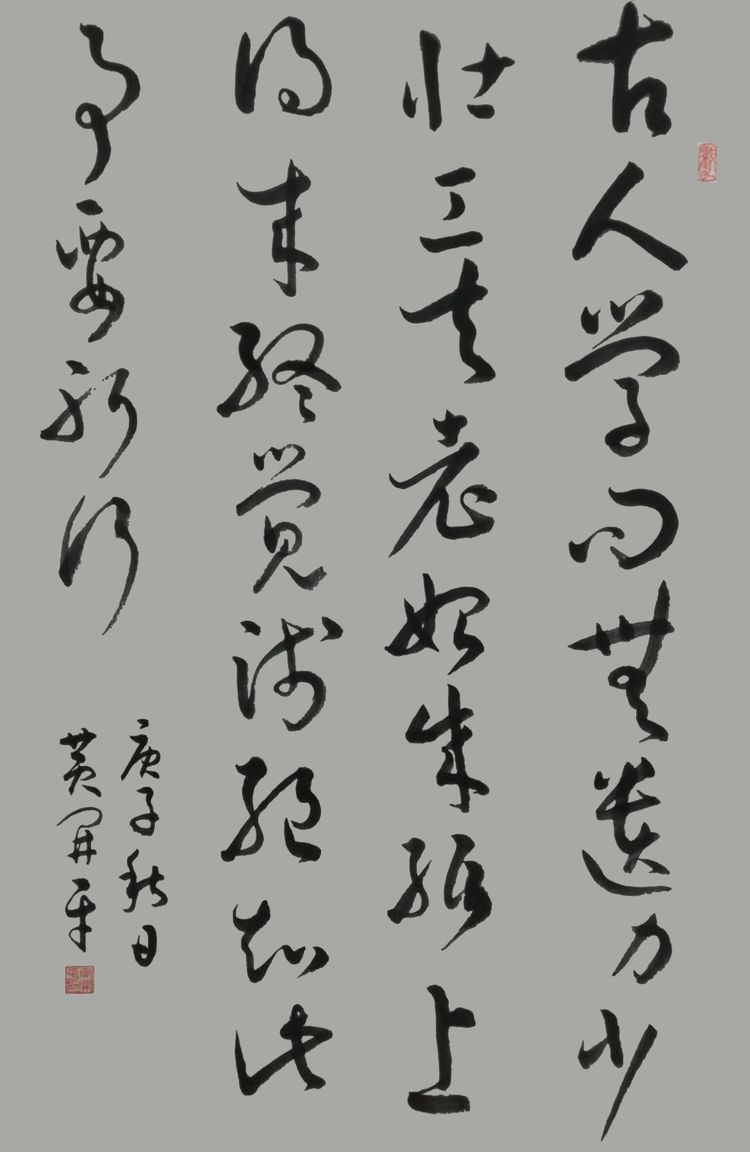 古人学问無遗力少
壮工夫老始成纸上
得来终觉浅绝知此
事要躬行
庚子秋日
黄開平